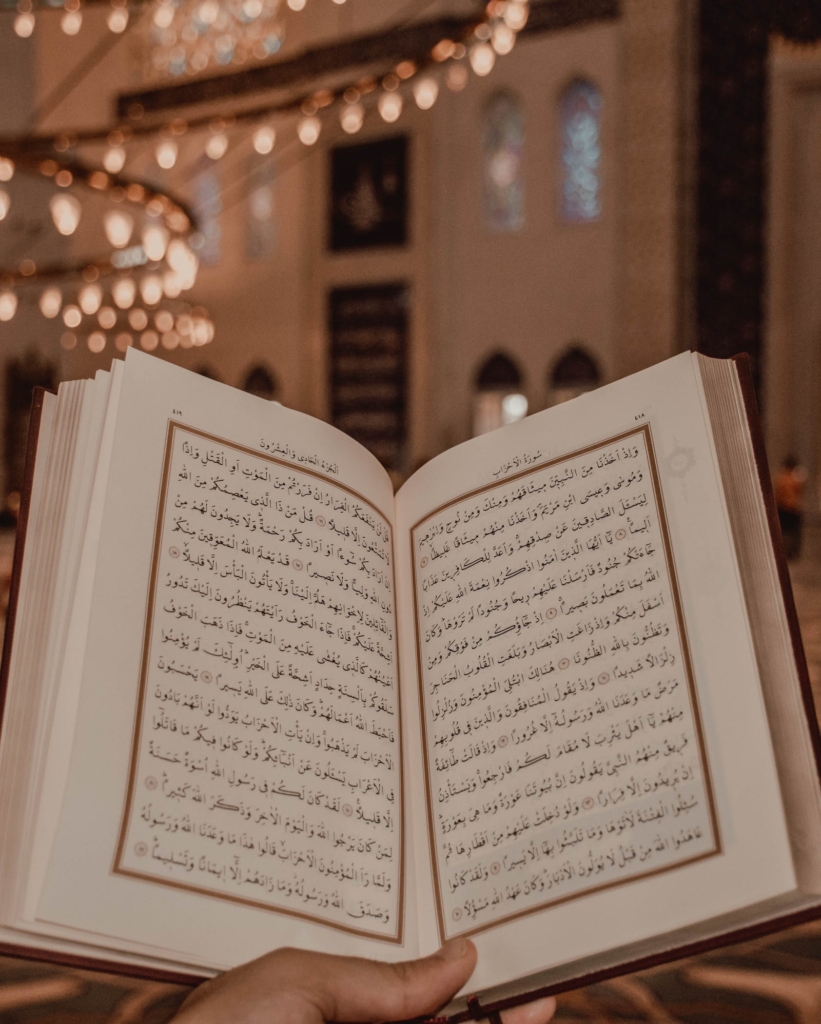 ٤١٨
سُورَةُ الْاَحْزَابِ
وَاِذْ اَخَذْنَا مِنَ النَّبِيّنَ مِيثَاقَهُمْ وَمِنْكَ وَمِنْ نُوحٍ وَاِبْرٰهِيمَ
وَمُوسٰى وَعِيسَى ابْنِ مَرْيَمَ وَاَخَذْنَا مِنْهُمْ مِيثَاقًا غَلِيظًا
لِيَسْـَٔلَ الصَّادِقِينَ عَنْ صِدْقِهِمْ وَاَعَدَّ لِلْكَافِرِينَ عَذَابًا
اَلِيمًا يَا اَيُّهَا الَّذِينَ اٰمَنُوا اذْكُرُوا نِعْمَةَ اللهِ عَلَيْكُمْ اِذْ
جَاءَتْكُمْ جُنُودٌ فَاَرْسَلْنَا عَلَيْهِمْ رِيحًا وَجُنُودًا لَمْ تَرَوْهَا وَكَانَ
اللهُ بِمَا تَعْمَلُونَ بَصِيرًا اِذْ جَاؤُكُمْ مِنْ فَوْقِكُمْ وَمِنْ
اَسْفَلَ مِنْكُمْ وَاِذْ زَاغَتِ الْاَبْصَارُ وَبَلَغَتِ الْقُلُوبُ الْحَنَاجِرَ
وَتَظُنُّونَ بِاللهِ الظُّنُونَا هُنَالِكَ ابْتُلِيَ الْمُؤْمِنُونَ وَزُلْزِلُوا
زِلْزَالًا شَدِيدًا وَاِذْ يَقُولُ الْمُنَافِقُونَ وَالَّذِينَ فِي قُلُوبِهِمْ
مَرَضٌ مَا وَعَدَنَا اللهُ وَرَسُولُهُ اِلَّا غُرُورًا وَاِذْ قَالَتْ طَائِفَةٌ
مِنْهُمْ يَا اَهْلَ يَثْرِبَ لَا مُقَامَ لَكُمْ فَارْجِعُوا وَيَسْتَأْذِنُ
فَرِيقٌ مِنْهُمُ النَّبِيَّ يَقُولُونَ اِنَّ بُيُوتَنَا عَوْرَةٌ وَمَا هِيَ بِعَوْرَةٍ
اِنْ يُرِيدُونَ اِلَّا فِرَارًا وَلَوْ دُخِلَتْ عَلَيْهِمْ مِنْ اَقْطَارِهَا ثُمَّ
سُئِلُوا الْفِتْنَةَ لَاٰتَوْهَا وَمَا تَلَبَّثُوا بِهَا اِلَّا يَسِيرًا وَلَقَدْ كَانُوا
عَاهَدُوا اللهَ مِنْ قَبْلُ لَا يُوَلُّونَ الْاَدْبَارَ وَكَانَ عَهْدُ اللهِ مَسْؤُلًا
٤١٩
اَلْجُزْءُ الْحَادِى وَالْعِشْرُونَ
قُلْ لَنْ يَنْفَعَكُمُ الْفِرَارُ اِنْ فَرَرْتُمْ مِنَ الْمَوْتِ اَوِ الْقَتْلِ وَاِذًا
لَا تُمَتَّعُونَ اِلَّا قَلِيلًا قُلْ مَنْ ذَا الَّذِي يَعْصِمُكُمْ مِنَ اللهِ
اِنْ اَرَادَ بِكُمْ سُوءًا اَوْ اَرَادَ بِكُمْ رَحْمَةً وَلَا يَجِدُونَ لَهُمْ مِنْ
دُونِ اللهِ وَلِيًّا وَلَا نَصِيرًا قَدْ يَعْلَمُ اللهُ الْمُعَوِّقِينَ مِنْكُمْ
وَالْقَائِلِينَ لِاِخْوَانِهِمْ هَلُمَّ اِلَيْنَا وَلَا يَأْتُونَ الْبَأْسَ اِلَّا قَلِيلًا
اَشِحَّةً عَلَيْكُمْ فَاِذَا جَاءَ الْخَوْفُ رَاَيْتَهُمْ يَنْظُرُونَ اِلَيْكَ تَدُورُ
اَعْيُنُهُمْ كَالَّذِي يُغْشٰى عَلَيْهِ مِنَ الْمَوْتِ فَاِذَا ذَهَبَ الْخَوْفُ
سَلَقُوكُمْ بِاَلْسِنَةٍ حِدَادٍ اَشِحَّةً عَلَى الْخَيْرِ اُولٰئِكَ لَمْ يُؤْمِنُوا
فَاَحْبَطَ اللهُ اَعْمَالَهُمْ وَكَانَ ذٰلِكَ عَلَى اللهِ يَسِيرًا يَحْسَبُونَ
الْاَحْزَابَ لَمْ يَذْهَبُوا وَاِنْ يَأْتِ الْاَحْزَابُ يَوَدُّوا لَوْ اَنَّهُمْ بَادُونَ
فِي الْاَعْرَابِ يَسْـَٔلُونَ عَنْ اَنْبَائِكُمْ وَلَوْ كَانُوا فِيكُمْ مَا قَاتَلُوا
اِلَّا قَلِيلًا لَقَدْ كَانَ لَكُمْ فِي رَسُولِ اللهِ اُسْوَةٌ حَسَنَةٌ
لِمَنْ كَانَ يَرْجُوا اللهَ وَالْيَوْمَ الْاٰخِرَ وَذَكَرَ اللهَ كَثِيرًا
وَلَمَّا رَاَ الْمُؤْمِنُونَ الْاَحْزَابَ قَالُوا هٰذَا مَا وَعَدَنَا اللهُ وَرَسُولُهُ
وَصَدَقَ اللهُ وَرَسُولُهُ وَمَا زَادَهُمْ اِلَّا اِيمَانًا وَتَسْلِيمًا